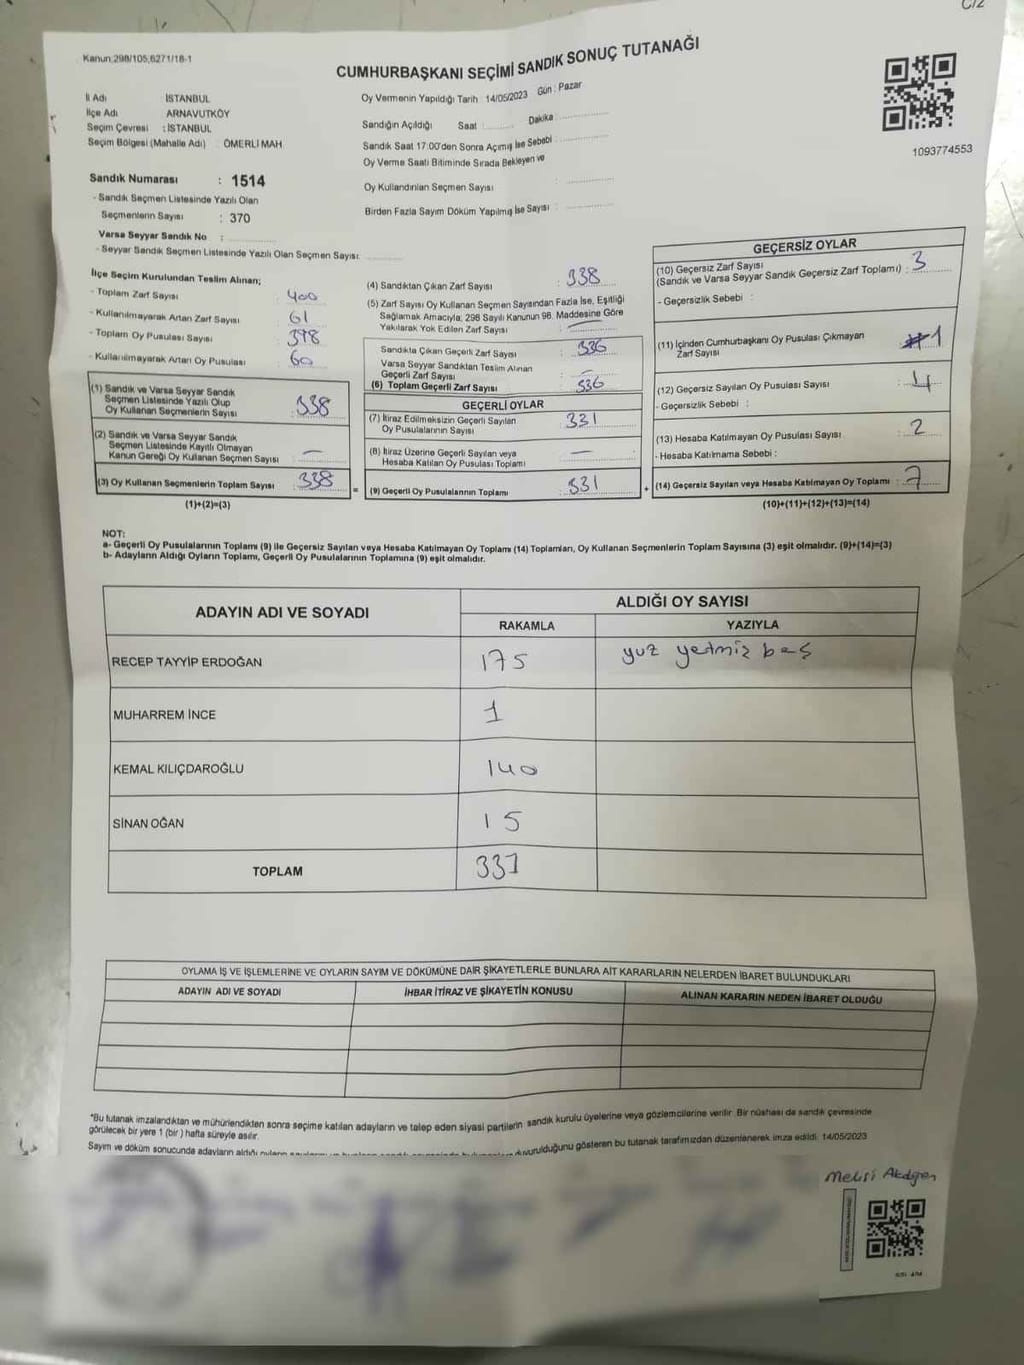 Kanun:298/105,6271/18-1
CUMHURBAŞKANI SEÇİMİ SANDIK SONUÇ TUTANAĞI
İl Adı İSTANBUL
İlçe Adı ARNAVUTKÖY
Seçim Çevresi : İSTANBUL
Seçim Bölgesi (Mahalle Adı) : ÖMERLİ MAH.
Oy Vermenin Yapıldığı Tarih : 14/05/2023 Gün : Pazar
Sandığın Açıldığı Saat : Dakika :
Sandık Saat 17:00'den Sonra Açımış İse Sebebi :
Oy Verme Saati Bitiminde Sırada Bekleyen ve
Oy Kullandırılan Seçmen Sayısı :
Birden Fazla Sayım Döküm Yapılmış İse Sayısı :
1093774553
Sandık Numarası : 1514
- Sandık Seçmen Listesinde Yazılı Olan
Seçmenlerin Sayısı : 370
Varsa Seyyar Sandık No :
- Seyyar Sandık Seçmen Listesinde Yazılı Olan Seçmen Sayısı:
İlçe Seçim Kurulundan Teslim Alınan;
- Toplam Zarf Sayısı : 400
- Kullanılmayarak Artan Zarf Sayısı : 61
- Toplam Oy Pusulası Sayısı : 398
- Kullanılmayarak Artan Oy Pusulası : 60
(1) Sandık ve Varsa Seyyar Sandık
Seçmen Listesinde Yazılı Olup
Oy Kullanan Seçmenlerin Sayısı : 338
(2) Sandık ve Varsa Seyyar Sandık
Seçmen Listesinde Kayıtlı Olmayan
Kanun Gereği Oy Kullanan Seçmen Sayısı : —
(3) Oy Kullanan Seçmenlerin Toplam Sayısı : 338
(1)+(2)=(3)
(4) Sandıktan Çıkan Zarf Sayısı : 338
(5) Zarf Sayısı Oy Kullanan Seçmen Sayısından Fazla İse, Eşitliği
Sağlamak Amacıyla; 298 Sayılı Kanunun 98. Maddesine Göre
Yakılarak Yok Edilen Zarf Sayısı : —
Sandıkta Çıkan Geçerli Zarf Sayısı : 336
Varsa Seyyar Sandıktan Teslim Alınan
Geçerli Zarf Sayısı : —
(6) Toplam Geçerli Zarf Sayısı : 336
GEÇERLİ OYLAR
(7) İtiraz Edilmeksizin Geçerli Sayılan
Oy Pusulalarının Sayısı : 331
(8) İtiraz Üzerine Geçerli Sayılan veya
Hesaba Katılan Oy Pusulası Toplamı : —
= (9) Geçerli Oy Pusulalarının Toplamı : 331 +
GEÇERSİZ OYLAR
(10) Geçersiz Zarf Sayısı
(Sandık ve Varsa Seyyar Sandık Geçersiz Zarf Toplamı) : 3
- Geçersizlik Sebebi :
(11) İçinden Cumhurbaşkanı Oy Pusulası Çıkmayan
Zarf Sayısı : 1
(12) Geçersiz Sayılan Oy Pusulası Sayısı : 4
- Geçersizlik Sebebi :
(13) Hesaba Katılmayan Oy Pusulası Sayısı : 2
- Hesaba Katılmama Sebebi :
(14) Geçersiz Sayılan veya Hesaba Katılmayan Oy Toplamı : 7
(10)+(11)+(12)+(13)=(14)
NOT:
a- Geçerli Oy Pusulalarının Toplamı (9) ile Geçersiz Sayılan veya Hesaba Katılmayan Oy Toplamı (14) Toplamları, Oy Kullanan Seçmenlerin Toplam Sayısına (3) eşit olmalıdır. (9)+(14)=(3)
b- Adayların Aldığı Oyların Toplamı, Geçerli Oy Pusulalarının Toplamına (9) eşit olmalıdır.
ADAYIN ADI VE SOYADI ALDIĞI OY SAYISI
RAKAMLA YAZIYLA
RECEP TAYYİP ERDOĞAN 175 yuz yetmiz beş
MUHARREM İNCE 1
KEMAL KILIÇDAROĞLU 140
SİNAN OĞAN 15
TOPLAM 331
OYLAMA İŞ VE İŞLEMLERİNE VE OYLARIN SAYIM VE DÖKÜMÜNE DAİR ŞİKAYETLERLE BUNLARA AİT KARARLARIN NELERDEN İBARET BULUNDUKLARI
ADAYIN ADI VE SOYADI İHBAR İTİRAZ VE ŞİKAYETİN KONUSU ALINAN KARARIN NEDEN İBARET OLDUĞU
*Bu tutanak imzalandıktan ve mühürlendikten sonra seçime katılan adayların ve talep eden siyasi partilerin sandık kurulu üyelerine veya gözlemcilerine verilir. Bir nüshası da sandık çevresinde
görülecek bir yere 1 (bir) hafta süreyle asılır.
Sayım ve döküm sonucunda adayların aldığı duyurulduğunu gösteren bu tutanak tarafımızdan düzenlenerek imza edildi. 14/05/2023